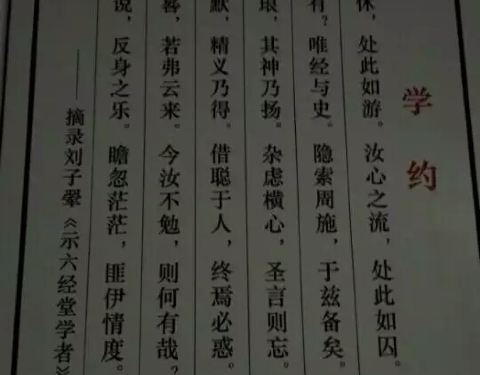 学约
休，处此如游。汝心之流，处此如囚。
有？唯经与史。隐索周施，于兹备矣。
琅，其神乃扬。杂虑横心，圣言则忘。
默，精义乃得。借聪于人，终焉必惑。
若弗云来。今汝不勉，则何有哉？
说，反身之乐。瞻忽茫茫，匪伊情度。
——摘录刘子翚《示六经堂学者》